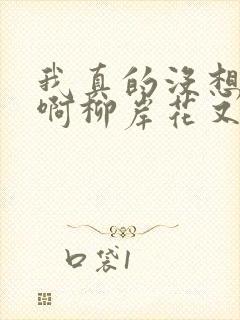 我真的没想
啊柳岸花又
口袋1